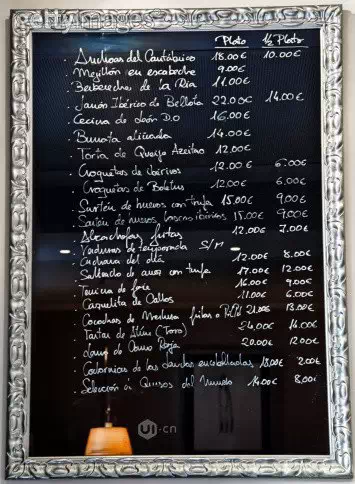 Plato ½ Plato
· Anchoas del Cantábrico 18.00€ 10.00€
· Mejillón en escabeche 9.00€
· Berberecho de la Ria 11.00€
· Jamón Ibérico de Bellota 22.00€ 14.00€
· Cecina de león D.O 16.00€
· Burrata aliñada 14.00€
· Torta de Queso Azeitao 12.00€
· Croquetas de ibéricos 12.00€ 6.00€
· Croquetas de Boletus 12.00€ 6.00€
· Sartén de huevos con trufa 15.00€ 9.00€
· de huevos ibéricos 15.00€ 9.00€
· Alcachofas fritas 12.00€ 7.00€
· Verduras de temporada S/M
· Cuchara del día 12.00€ 8.00€
· Salteado de con trufa 17.00€ 12.00€
· Terrina de foie 16.00€ 9.00€
· Cazuelita de Callos 11.00€ 6.00€
· Cocochas de Merluza fritas o Pil Pil 21.00€ 13.00€
· Tartar de Atún (Toro) 24.00€ 16.00€
· Lomo de Vaca Roja 20.00€ 12.00€
· Codornices de las escabechadas 18.00€ 2.00€
· Selección de Quesos del Mundo 14.00€ 8.00€
UI·cn